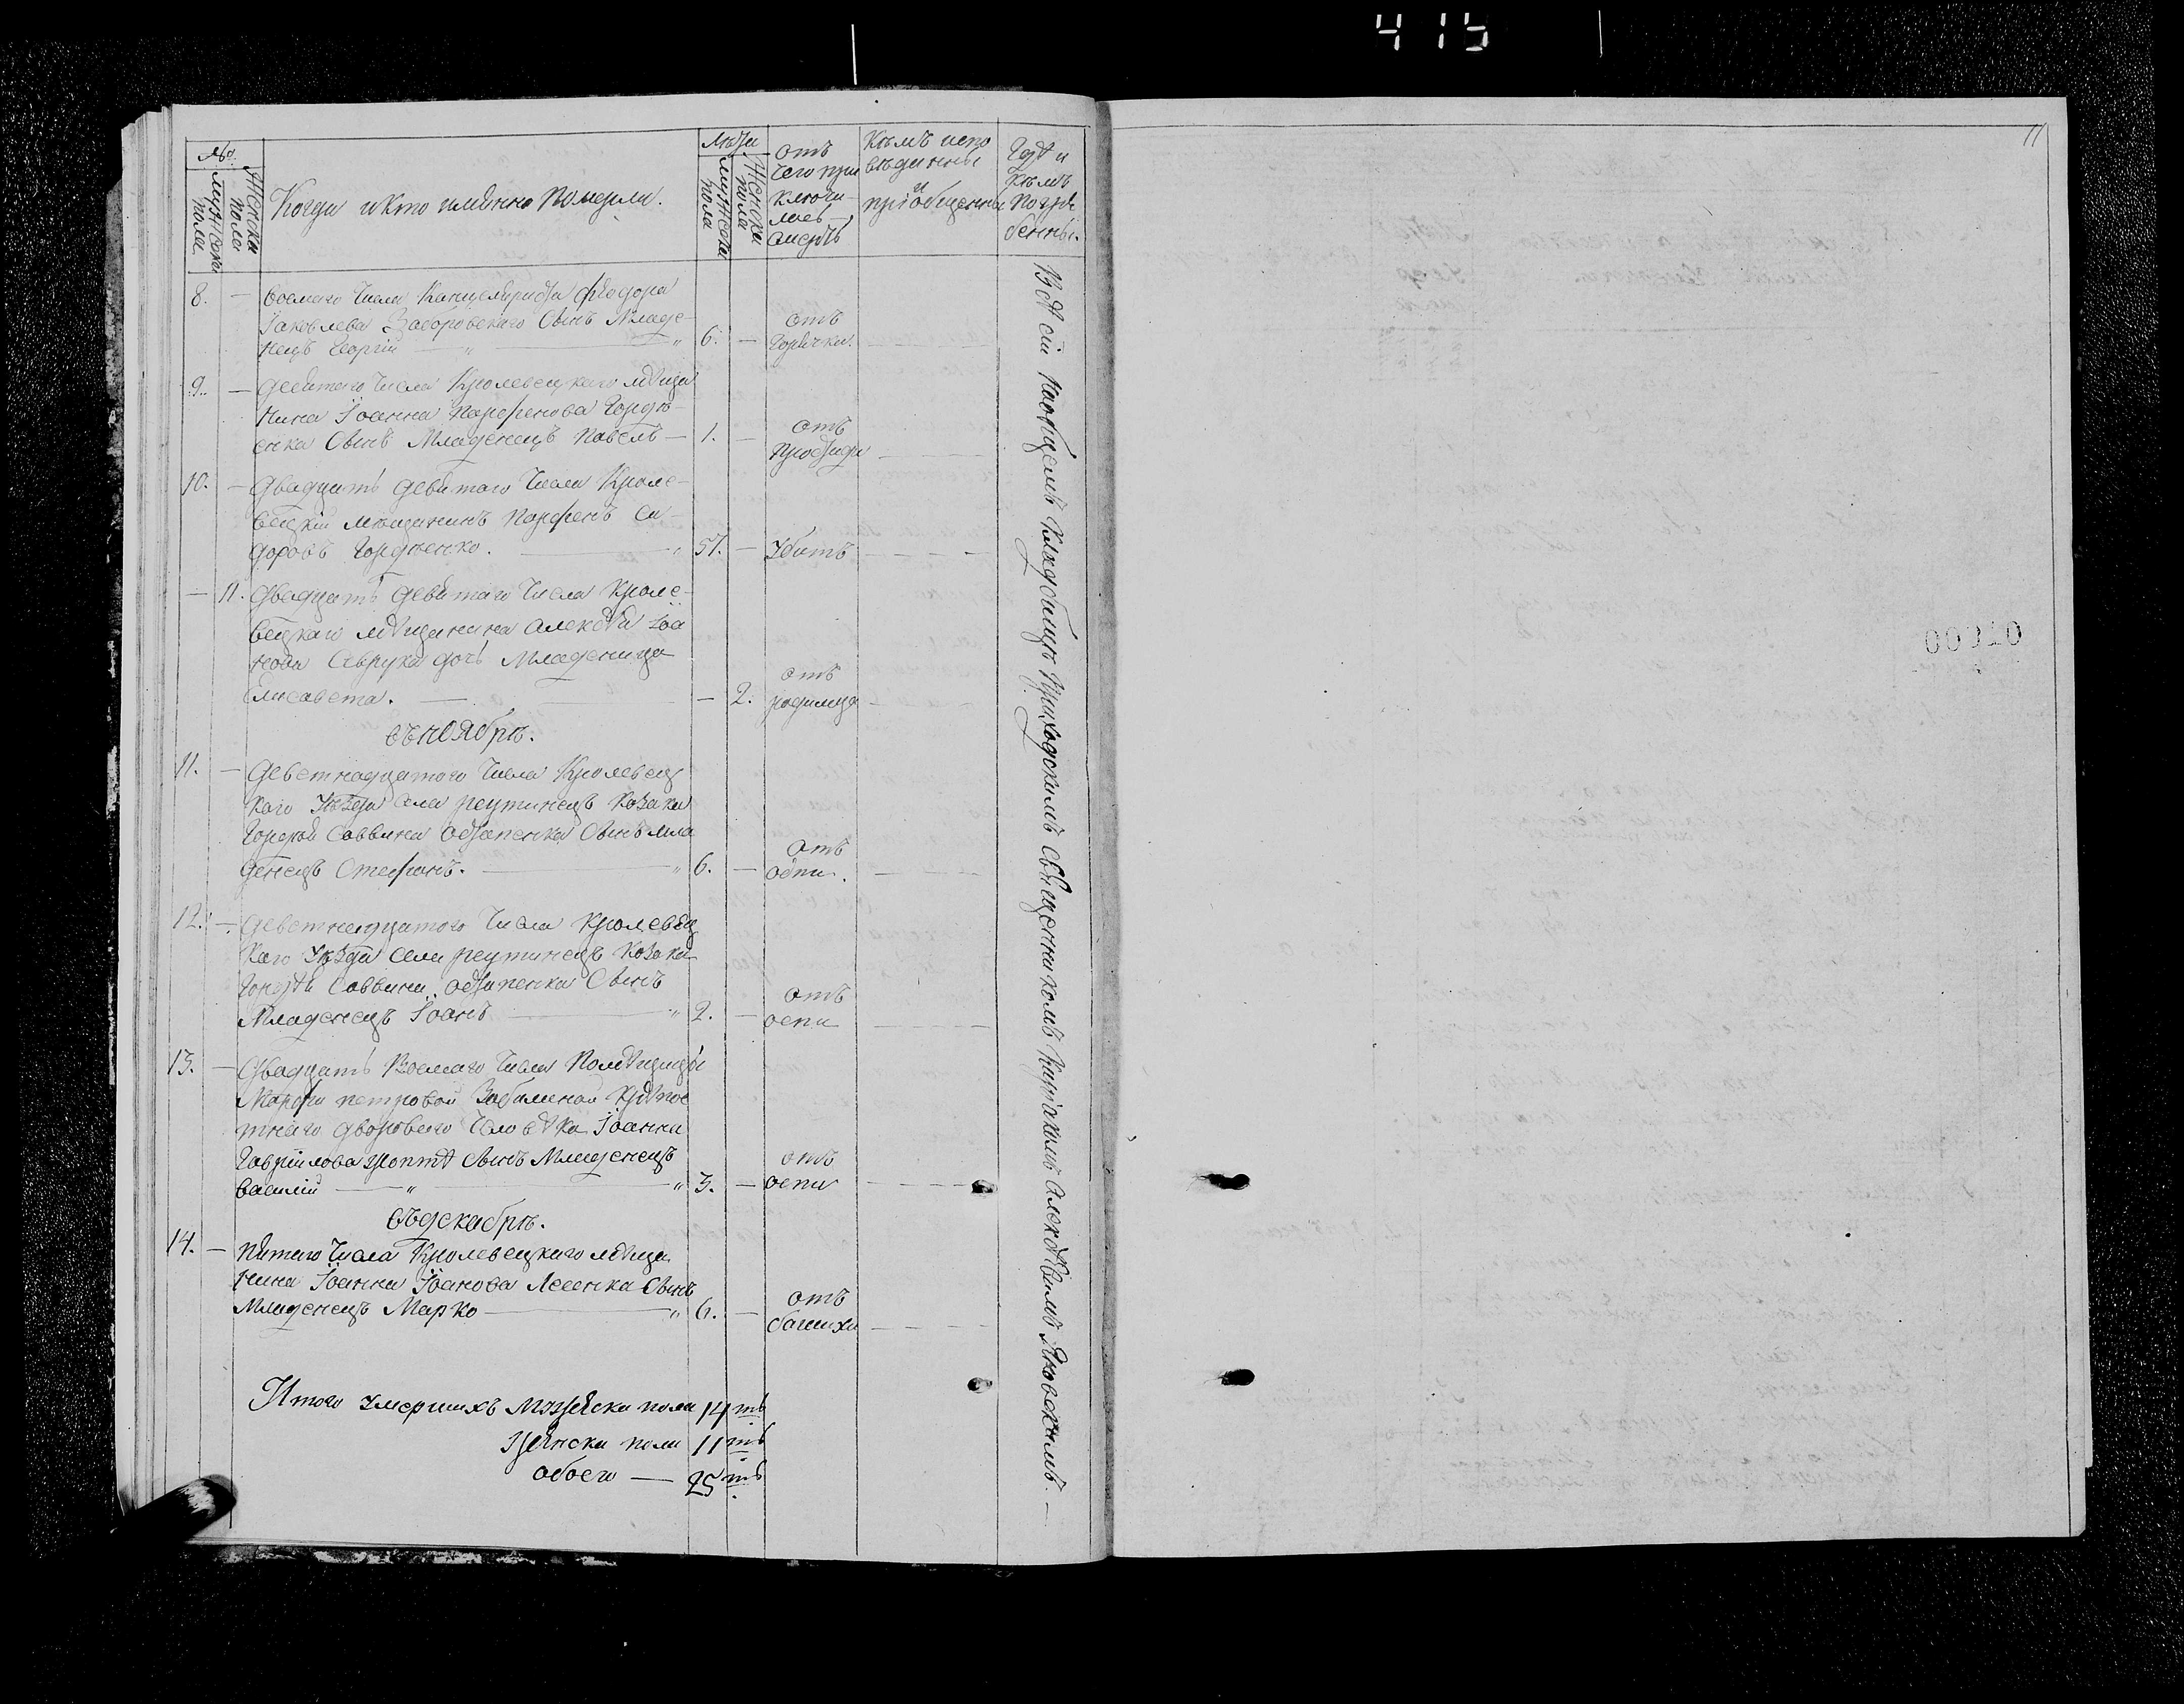 415
11
№.
мужеска пола
Женска пола
Когда и кто имянно Померли.
Лѣта
мужеска пола
Женска пола
отъ
чего при
ключи-
лась
смерть
Кѣмъ испо
вѣданны
и
приобщенны
Гдѣ и
кѣмъ
Погре
бенны.
8. — Восмаго числа Канцеляриста Феодора
Іаковлева Заборовскаго Сынъ Младе-
нецъ Георгій — 6. —
отъ
Горячки.
9. — Девятаго числа Кролевецкаго мѣща
нина Іоанна Парфенова Гордѣ-
енка Сынъ Младенецъ Павелъ — 1. —
отъ
Простуди
10. — Двадцять девятаго числа Кроле-
вецкій мѣщанинъ Парфенъ Си-
доровъ Гордѣенко. 57. — Убитъ
— 11. Двадцать девятаго числа Кроле-
вецкаго мѣщанина Алексѣя Іоа
нова Саврука дочь Младеница
Елисавета. — 2.
отъ
родимца
въ Ноябрѣ.
11. — Деветнадцатого числа Кролевец
каго уѣзда села реутинецъ козака
Гордѣя Саввина Остапенка Сынъ мла
денецъ Стефанъ. 6. —
отъ
оспи.
12. — Деветнадцатого числа Кролевец
каго уѣзда села реутинецъ козака
Гордѣя Саввина Остапенка Сынъ
Младенецъ Іоанъ 2. —
отъ
оспи
13. — Двадцать Восмаго числа Помѣщици
Марфи петровой Забелиной Крѣпос
тнаго дворового человѣка Іоанна
Гавріилова Сынъ Младенецъ
Василій — 3. —
отъ
оспи
въ декабрѣ.
14. — Пятаго числа Кролевецкаго мѣща
нина Іоанна Іоанова Лесенка Сынъ
Младенецъ Марко 6. —
отъ
бешихи
Всѣ сіи на общемъ кладбищѣ Приходскимъ священникомъ Киріакимъ Алексѣевимъ Яновскимъ. —
Итого умершихъ мужеска пола 14ть
женска пола 11ть
обоего — 25ть